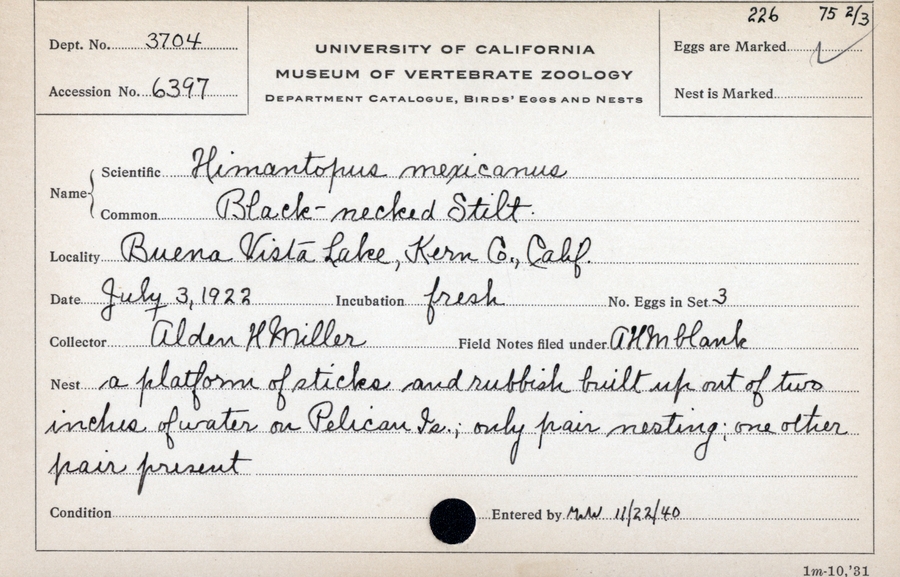 226 75 2/3
Dept. No. 3704
UNIVERSITY OF CALIFORNIA
Eggs are Marked ✓
MUSEUM OF VERTEBRATE ZOOLOGY
Accession No. 6397
Nest is Marked
DEPARTMENT CATALOGUE, BIRDS' EGGS AND NESTS
Name { Scientific Himantopus mexicanus
Common Black-necked Stilt.
Locality Buena Vista Lake, Kern Co., Calif.
Date July 3, 1922 Incubation fresh No. Eggs in Set 3
Collector Alden H Miller Field Notes filed under AHM blank
Nest a platform of sticks and rubbish built up out of two
inches of water on Pelican Is.; only pair nesting; one other
pair present
Condition Entered by 11/22/40
1m-10,'31